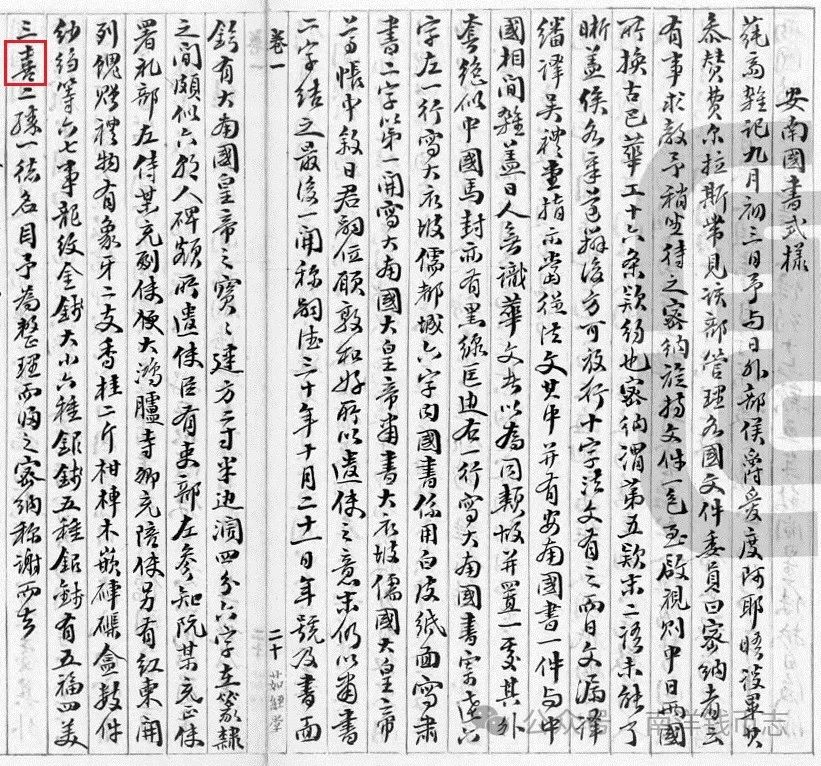 安南國書式樣
蒓齋雜記九月初三日予與日外部侯爵愛度阿耶晤談畢其
參贊費尔拉斯常見該部管理各國文件委員曰密納者云
有事求教予稍坐待之密納旋持文件一包至啟視則中日兩國
所換古巴華工十六条欵約也密納謂第五欵末二語未能了
晰盖俟各華 後方可放行十字法文有之而日文漏譯
繙譯吴禮堂指示當從法文其中并有安南國書一件与中
國相間雜盖日人無識華文者以為同類故并置一處其外
套絶似中國馬封亦有黑線匡边右一行寫大南國書寄逓六
字左一行寫大衣坡儒都城六字内國書係用白皮紙面寫肅
書二字以第一開寫大南國大皇帝肅書大衣坡儒國大皇帝
等帳中敘日君嗣位願敦和好所以遣使之意末仍以肅書
二字結之最後一開称嗣德三十年十月二十一日年號及書面
卷一
二十
鈐有大南國皇帝之寶〻建方二寸半边濶四分六字在篆隸
之間頗似六朝人碑額所遣使臣有吏部左參知阮某充正使
署礼部左侍某充副使便大鴻臚寺卿充陪使另有紅柬開
列餽贈禮物有象牙二支香桂二斤柑棹木嵌硨磲盒数件
紗绉等六七事龍紋金錢大小六種銀錢五種鋁錢有五福四美
三喜二 一德名目予為整理而歸之密納称谢而去
公众号·南洋钱币志